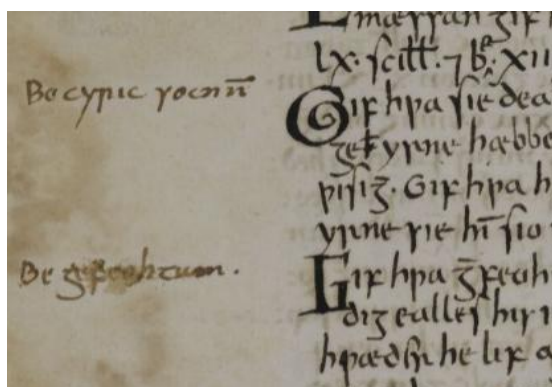 Be cyric socnū
Be gefeohtum.
mærran gif
lx. scill. ⁊ b xii
Gif hƿa sie dea
hæbbe
ƿisig̅. Gif hƿa h
yrne sie hī sio
Gif hƿa g̅feoh
dig ealles his i
he lif a